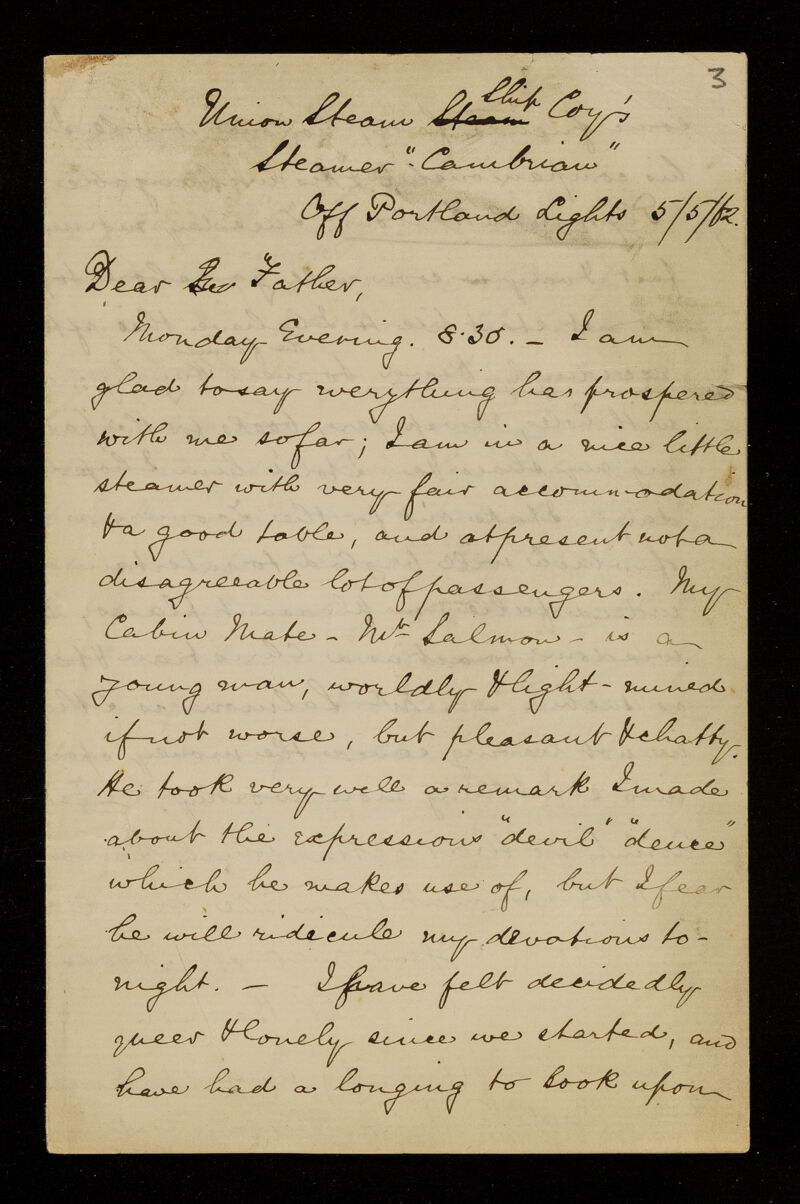 3
Union Steam Steam Ship Coy's
Steamer "Cambrian"
Off Portland Lights 5/5/62.
Dear Father,
Monday Evening. 8.30. – I am
glad to say everything has prospered
with me so far; I am in a nice little
steamer with very fair accommodation
& a good table, and at present not a
disagreeable lot of passengers. My
Cabin Mate – Mr Salmon – is a
young man, worldly & light-mined
if not worse, but pleasant & chatty.
He took very well a remark I made
about the expressions "devil" "deuce"
which he makes use of, but I fear
he will ridicule my devotions to-
night. – I have felt decidedly
queer & lonely since we started, and
have had a longing to look upon